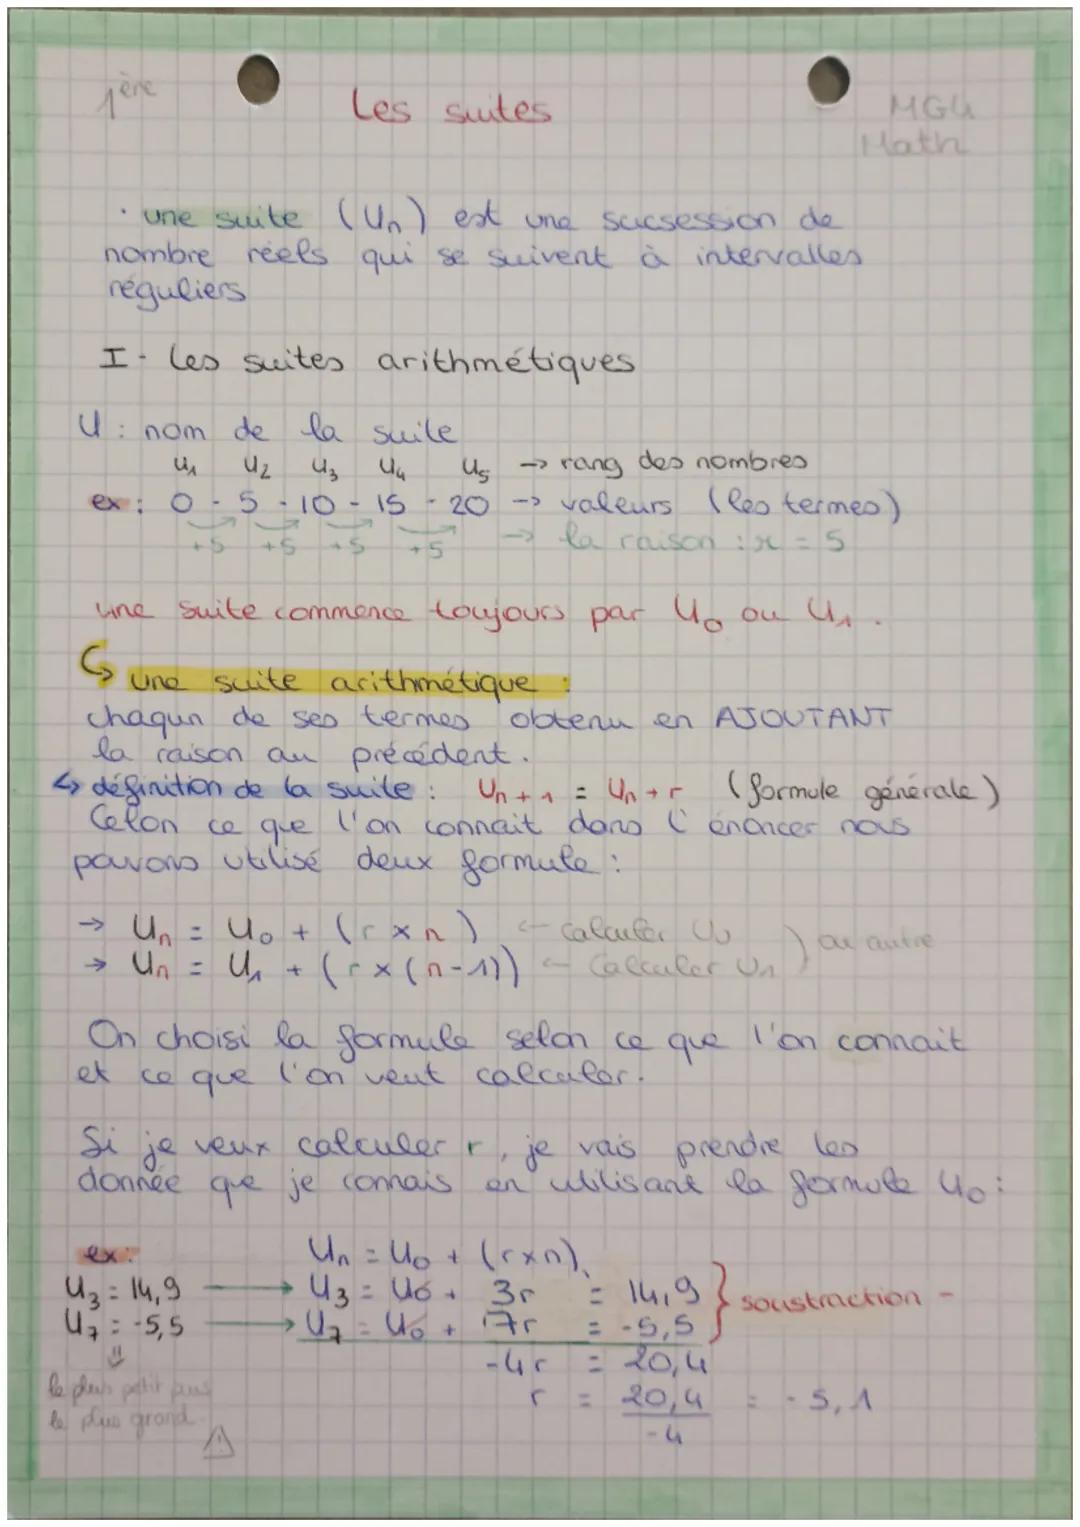 1ère
Les suites
MG4
Math
· une suite (Un) est une sucsession de
nombre réels qui se suivent à intervalles
réguliers
I - Les suites arithmétiques
U : nom de la suite
U1 U2 U3 U4 U5 → rang des nombres
ex : 0 - 5 - 10 - 15 - 20 → valeurs (les termes)
+5 +5 +5 +5 → la raison : r = 5
une suite commence toujours par U0 ou U1.
↳ une suite arithmétique :
chaqun de ses termes obtenu en AJOUTANT
la raison au précédent.
↳ définition de la suite : Un+1 = Un + r (formule générale)
Celon ce que l'on connait dans l'énoncer nous
pouvons utilisé deux formule :
→ Un = U0 + (r × n) ← calculer U0
→ Un = U1 + (r × (n-1)) ← Calculer Un
) ou autre
On choisi la formule selon ce que l'on connait
et ce que l'on veut calculer.
Si je veux calculer r, je vais prendre les
donnée que je connais en utilisant la formule U0 :
ex: Un = U0 + (r×n)
U3 = 14,9 → U3 = U0 + 3r = 14,9
U7 = -5,5 → U7 = U0 + 7r = -5,5
} soustraction -
⇓ -4r = 20,4
le plus petit puis
le plus grand. ⚠
r = 20,4 / -4 = -5,1